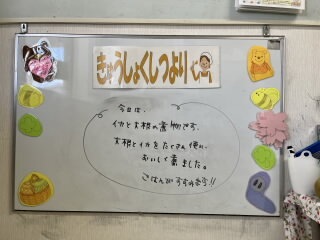 きゅうしょくしつより
今日は、
イカと大根の煮物です。
大根とイカをたくさん使い、
おいしく煮ました。
ごはんがすすみます!!